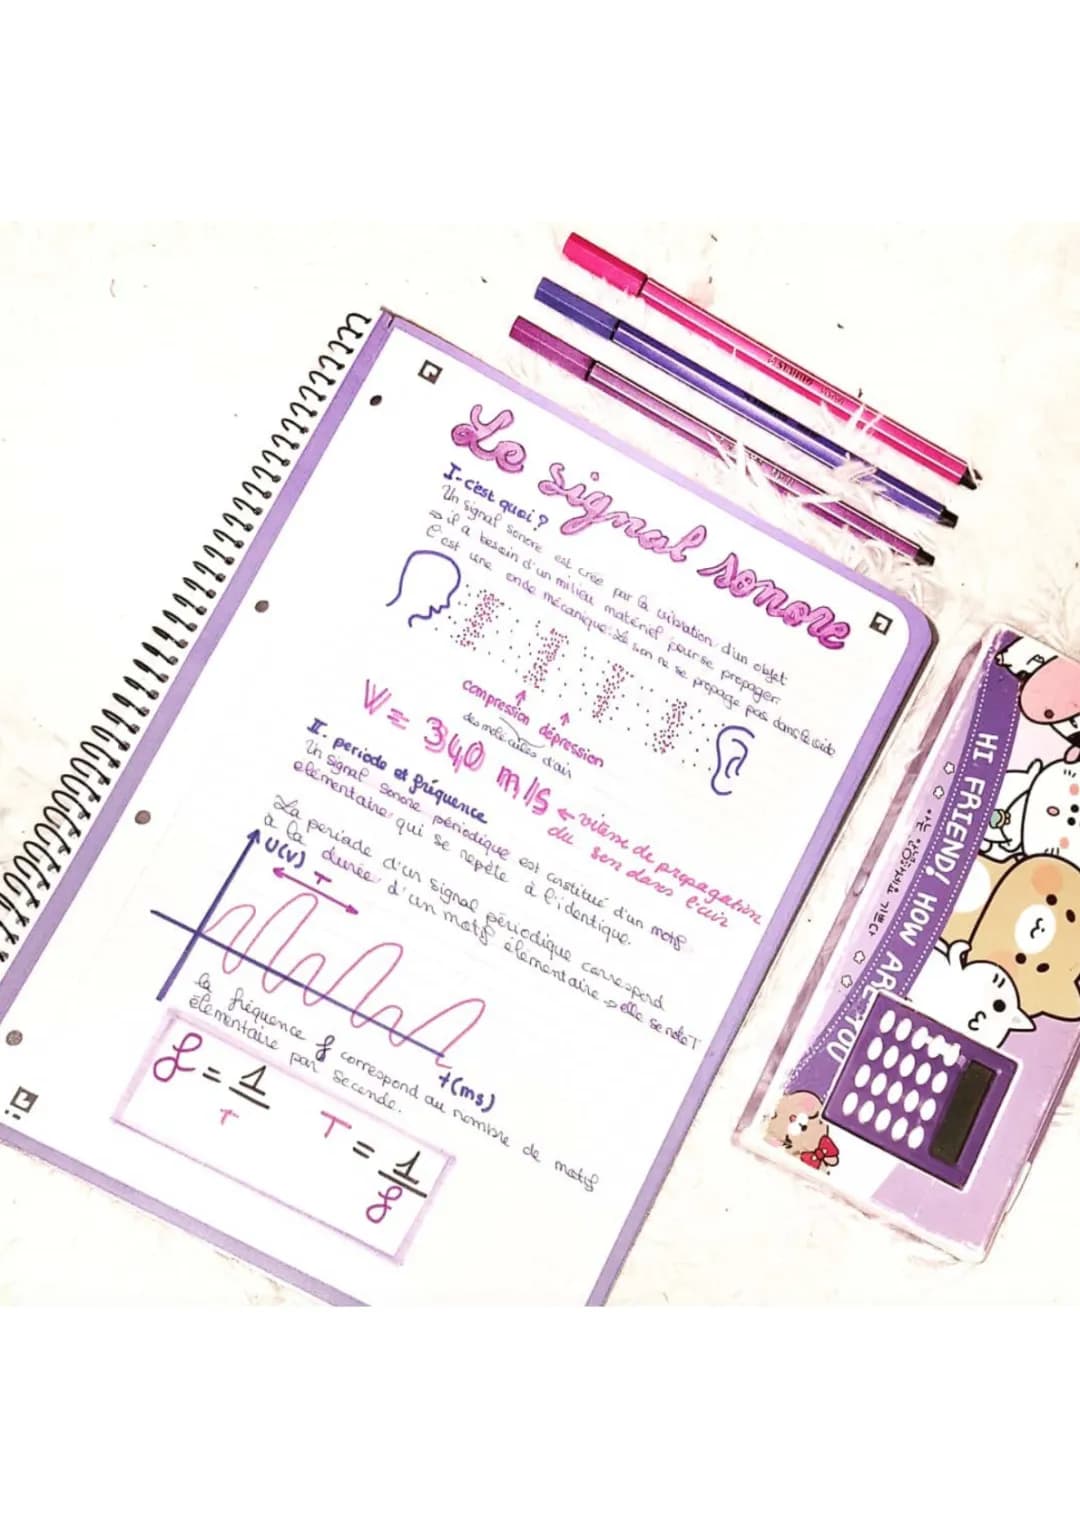 Le signal sonore
I- c'est quoi ?
Un signal sonore est crée par la vibration d'un objet
⇒ il a besoin d'un milieu matériel pour se propager.
C'est une onde mécanique. Le son ne se propage pas dans le vide
compression dépression
des molécules d'air
V = 340 m/s ← vitesse de propagation
du son dans l'air
II. periode et fréquence
Un signal sonore périodique est constitué d'un motif
élémentaire qui se repète à l'identique.
La periode d'un signal périodique correspond
à la durée d'un motif élémentaire ⇒ elle se note T
U(V)
T
t(ms)
la fréquence f correspond au nombre de motif
élémentaire par seconde.
f = 1/T T = 1/f
HI FRIEND! HOW ARE YOU
STABILO